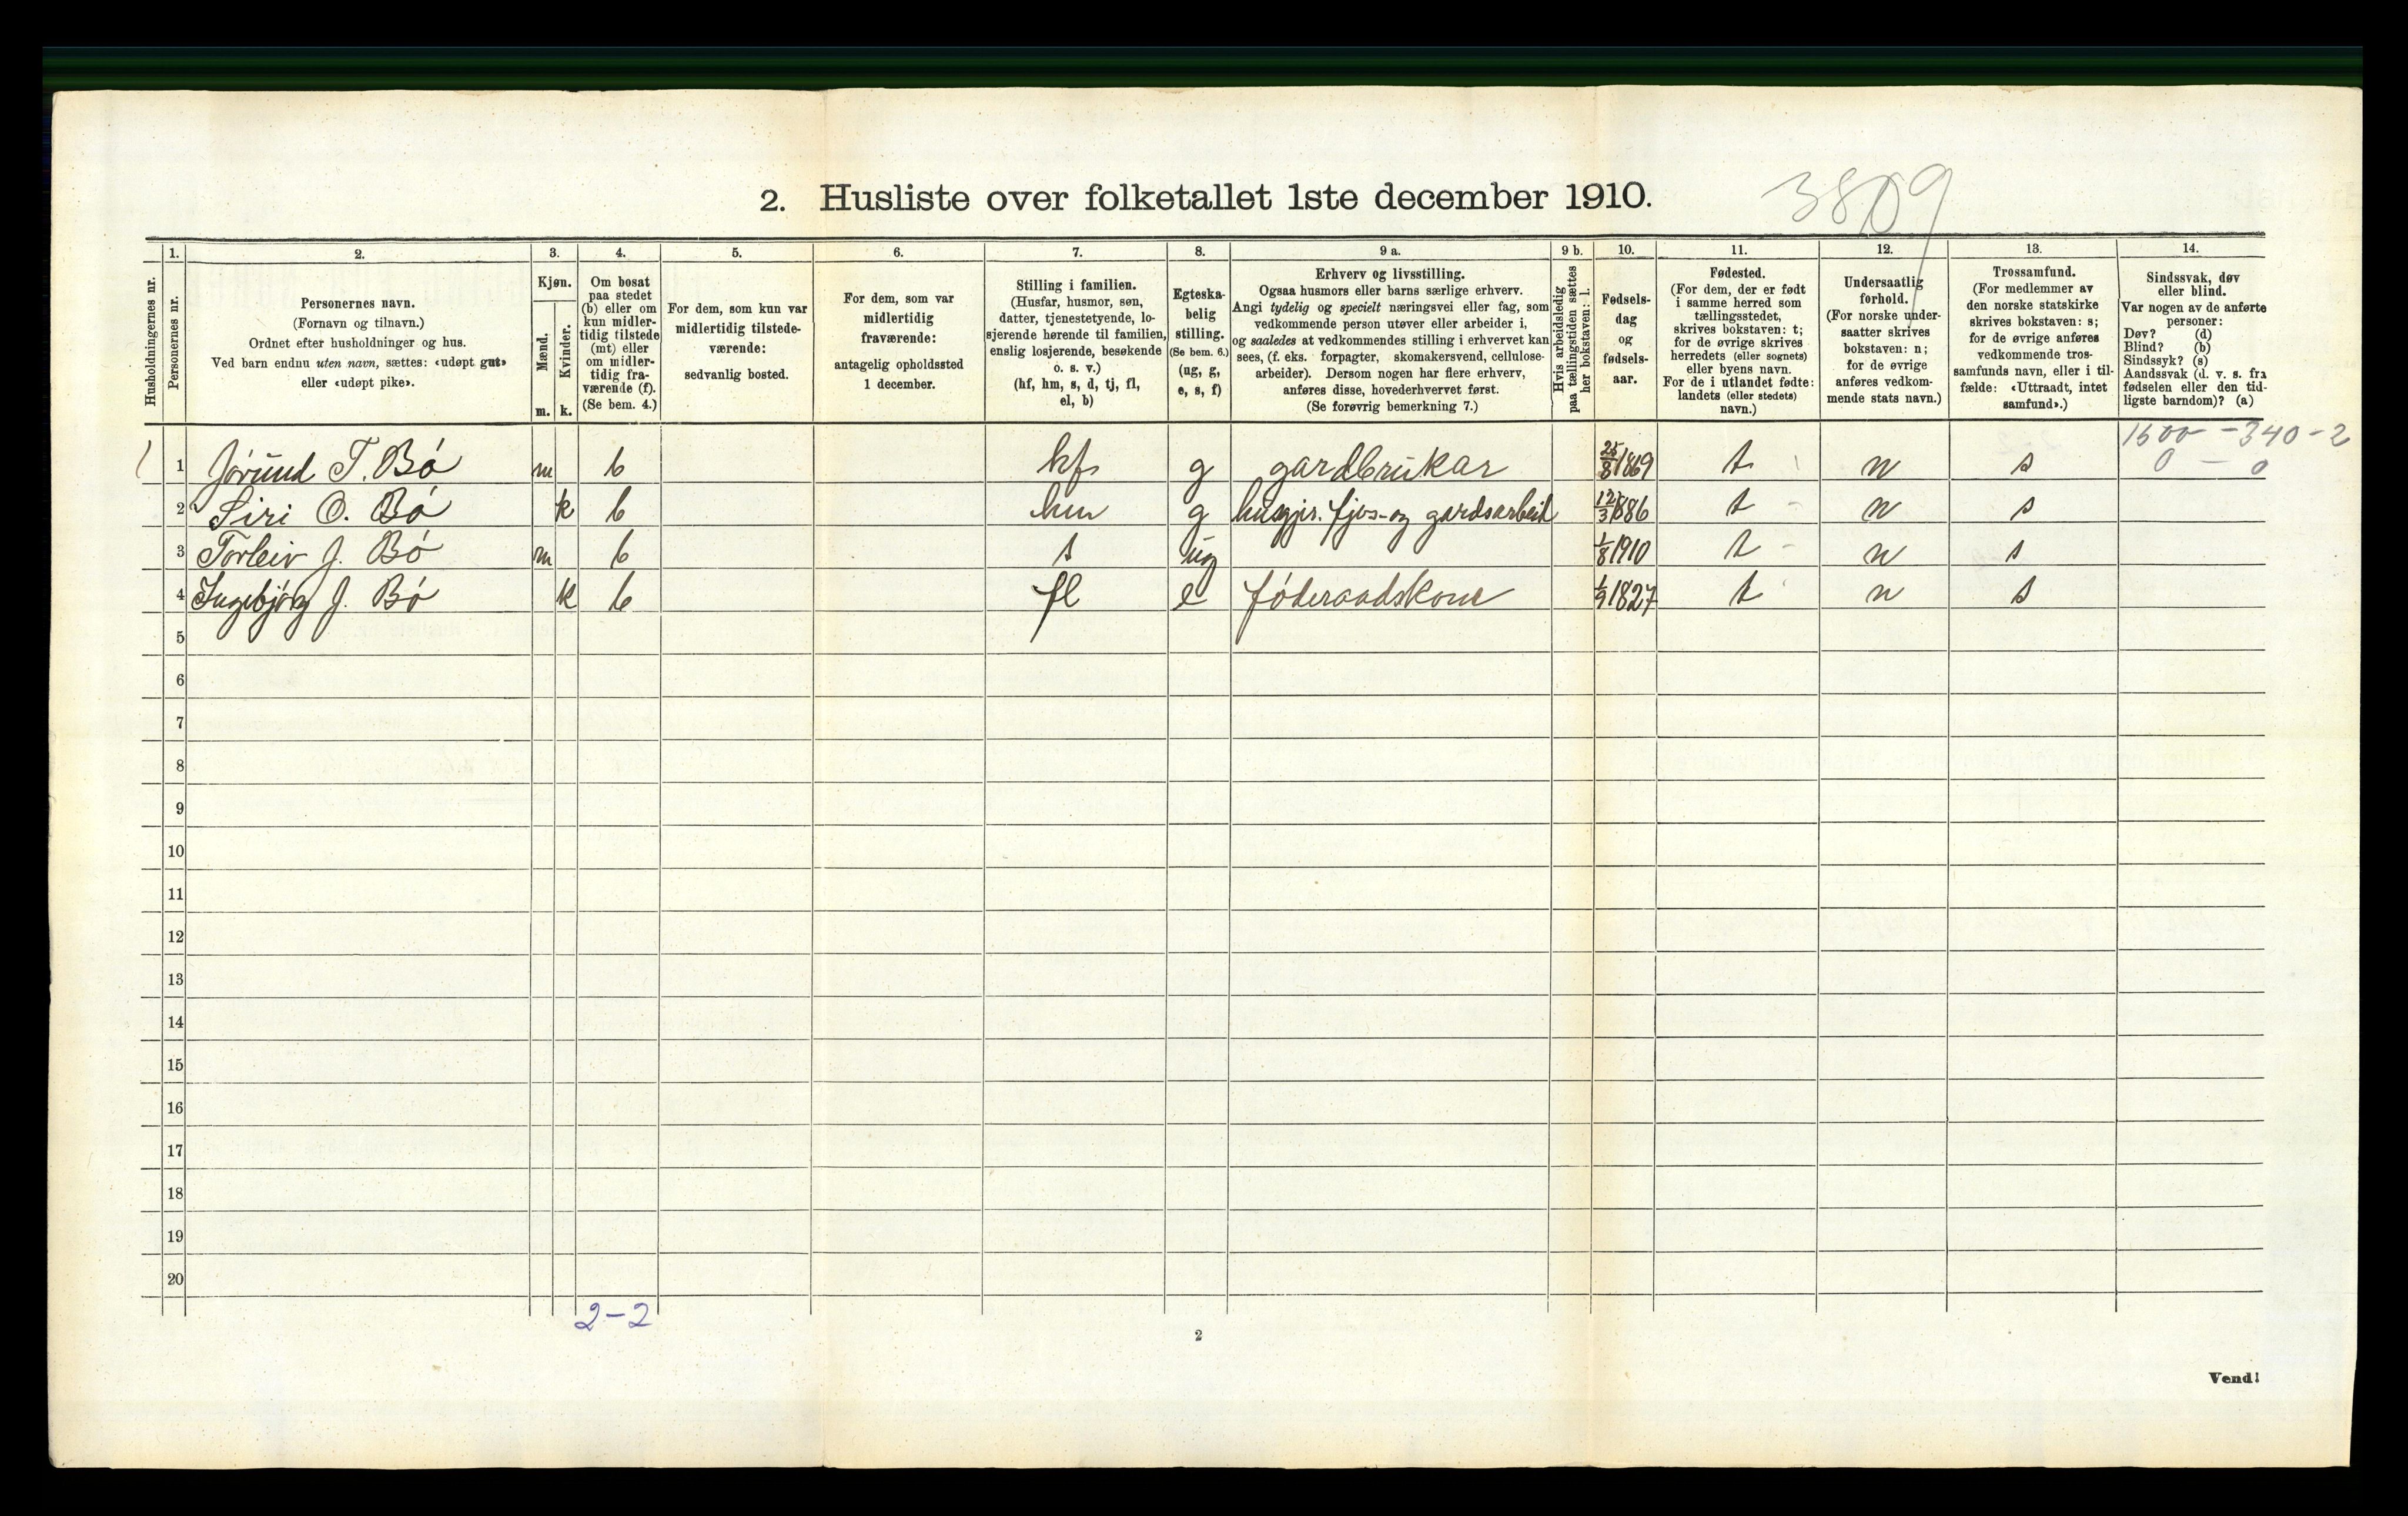 2. Husliste over folketallet 1ste december 1910.
3809
Husholdningernes nr.
1.
Personernes nr.
2.
Personernes navn.
(Fornavn og tilnavn.)
Ordnet efter husholdninger og hus.
Ved barn endnu uten navn, sættes: «udøpt gut»
eller «udøpt pike».
3.
Kjøn.
Mænd.
Kvinder.
m. k.
4.
Om bosat
paa stedet
(b) eller om
kun midler-
tidig tilstede
(mt) eller
om midler-
tidig fra-
værende (f).
(Se bem. 4.)
5.
For dem, som kun var
midlertidig tilstede-
værende:
sedvanlig bosted.
6.
For dem, som var
midlertidig
fraværende:
antagelig opholdssted
1 december.
7.
Stilling i familien.
(Husfar, husmor, søn,
datter, tjenestetyende, lo-
sjerende hørende til familien,
enslig losjerende, besøkende
o. s. v.)
(hf, hm, s, d, tj, fl,
el, b)
8.
Egteska-
belig
stilling.
(Se bem. 6.)
(ug, g,
e, s, f)
9 a.
Erhverv og livsstilling.
Ogsaa husmors eller barns særlige erhverv.
Angi tydelig og specielt næringsvei eller fag, som
vedkommende person utøver eller arbeider i,
og saaledes at vedkommendes stilling i erhvervet kan
sees, (f. eks. forpagter, skomakersvend, cellulose-
arbeider). Dersom nogen har flere erhverv,
anføres disse, hovederhvervet først.
(Se forøvrig bemerkning 7.)
9 b.
Hvis arbeidsledig
paa tællingstiden sættes
her bokstaven: l.
10.
Fødsels-
dag
og
fødsels-
aar.
11.
Fødested.
(For dem, der er født
i samme herred som
tællingsstedet,
skrives bokstaven: t;
for de øvrige skrives
herredets (eller sognets)
eller byens navn.
For de i utlandet fødte:
landets (eller stedets)
navn.)
12.
Undersaatlig
forhold.
(For norske under-
saatter skrives
bokstaven: n;
for de øvrige
anføres vedkom-
mende stats navn.)
13.
Trossamfund.
(For medlemmer av
den norske statskirke
skrives bokstaven: s;
for de øvrige anføres
vedkommende tros-
samfunds navn, eller i til-
fælde: «Uttraadt, intet
samfund».)
14.
Sindssvak, døv
eller blind.
Var nogen av de anførte
personer:
Døv? (d)
Blind? (b)
Sindssyk? (s)
Aandssvak (d. v. s. fra
fødselen eller den tid-
ligste barndom)? (a)
1600 - 340 - 2
0 - 0
1 Jørund T. Bø m b hf g gardbrukar 25/8 1869 t n s
2 Siri O. Bø k b hm g husgjer. fjøs- og gardsarbeid 12/3 1886 t - n s
3 Torleiv J. Bø m b s ug 1/8 1910 t - n s
4 Ingebjørg J. Bø k b fl e føderaadskone 1/9 1827 t n s
5
6
7
8
9
10
11
12
13
14
15
16
17
18
19
20
2-2
2
Vend!